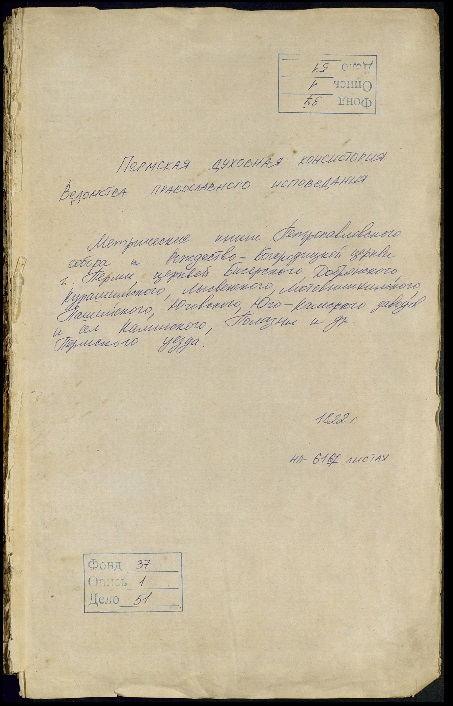 Фонд 37
Опись 1
Дело 51
Пермская духовная консистория
Ведомства православного исповедания
Метрические книги Петропавловского
собора и Рождество-Богородицкой церкви
г. Перми церквей Бисерского, Добрянского,
Курашимского, Лысьвенского, Мотовилихинского
Пашийского, Юговского, Юго-Камского заводов
и сел Калинского, Полазны и др
Пермского уезда.
на листах
Фонд 37
Опись 1
Дело 51